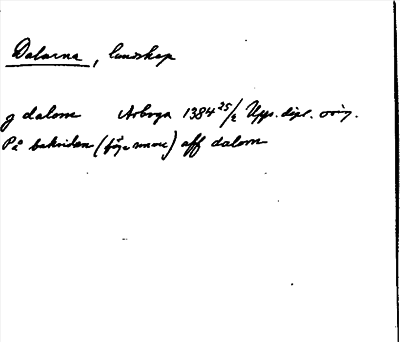 Dalarna, landskap
g dalom Arboga 1384 25/2 Upps. dipl. orig.
På baksidan (föga senare) aff dalom